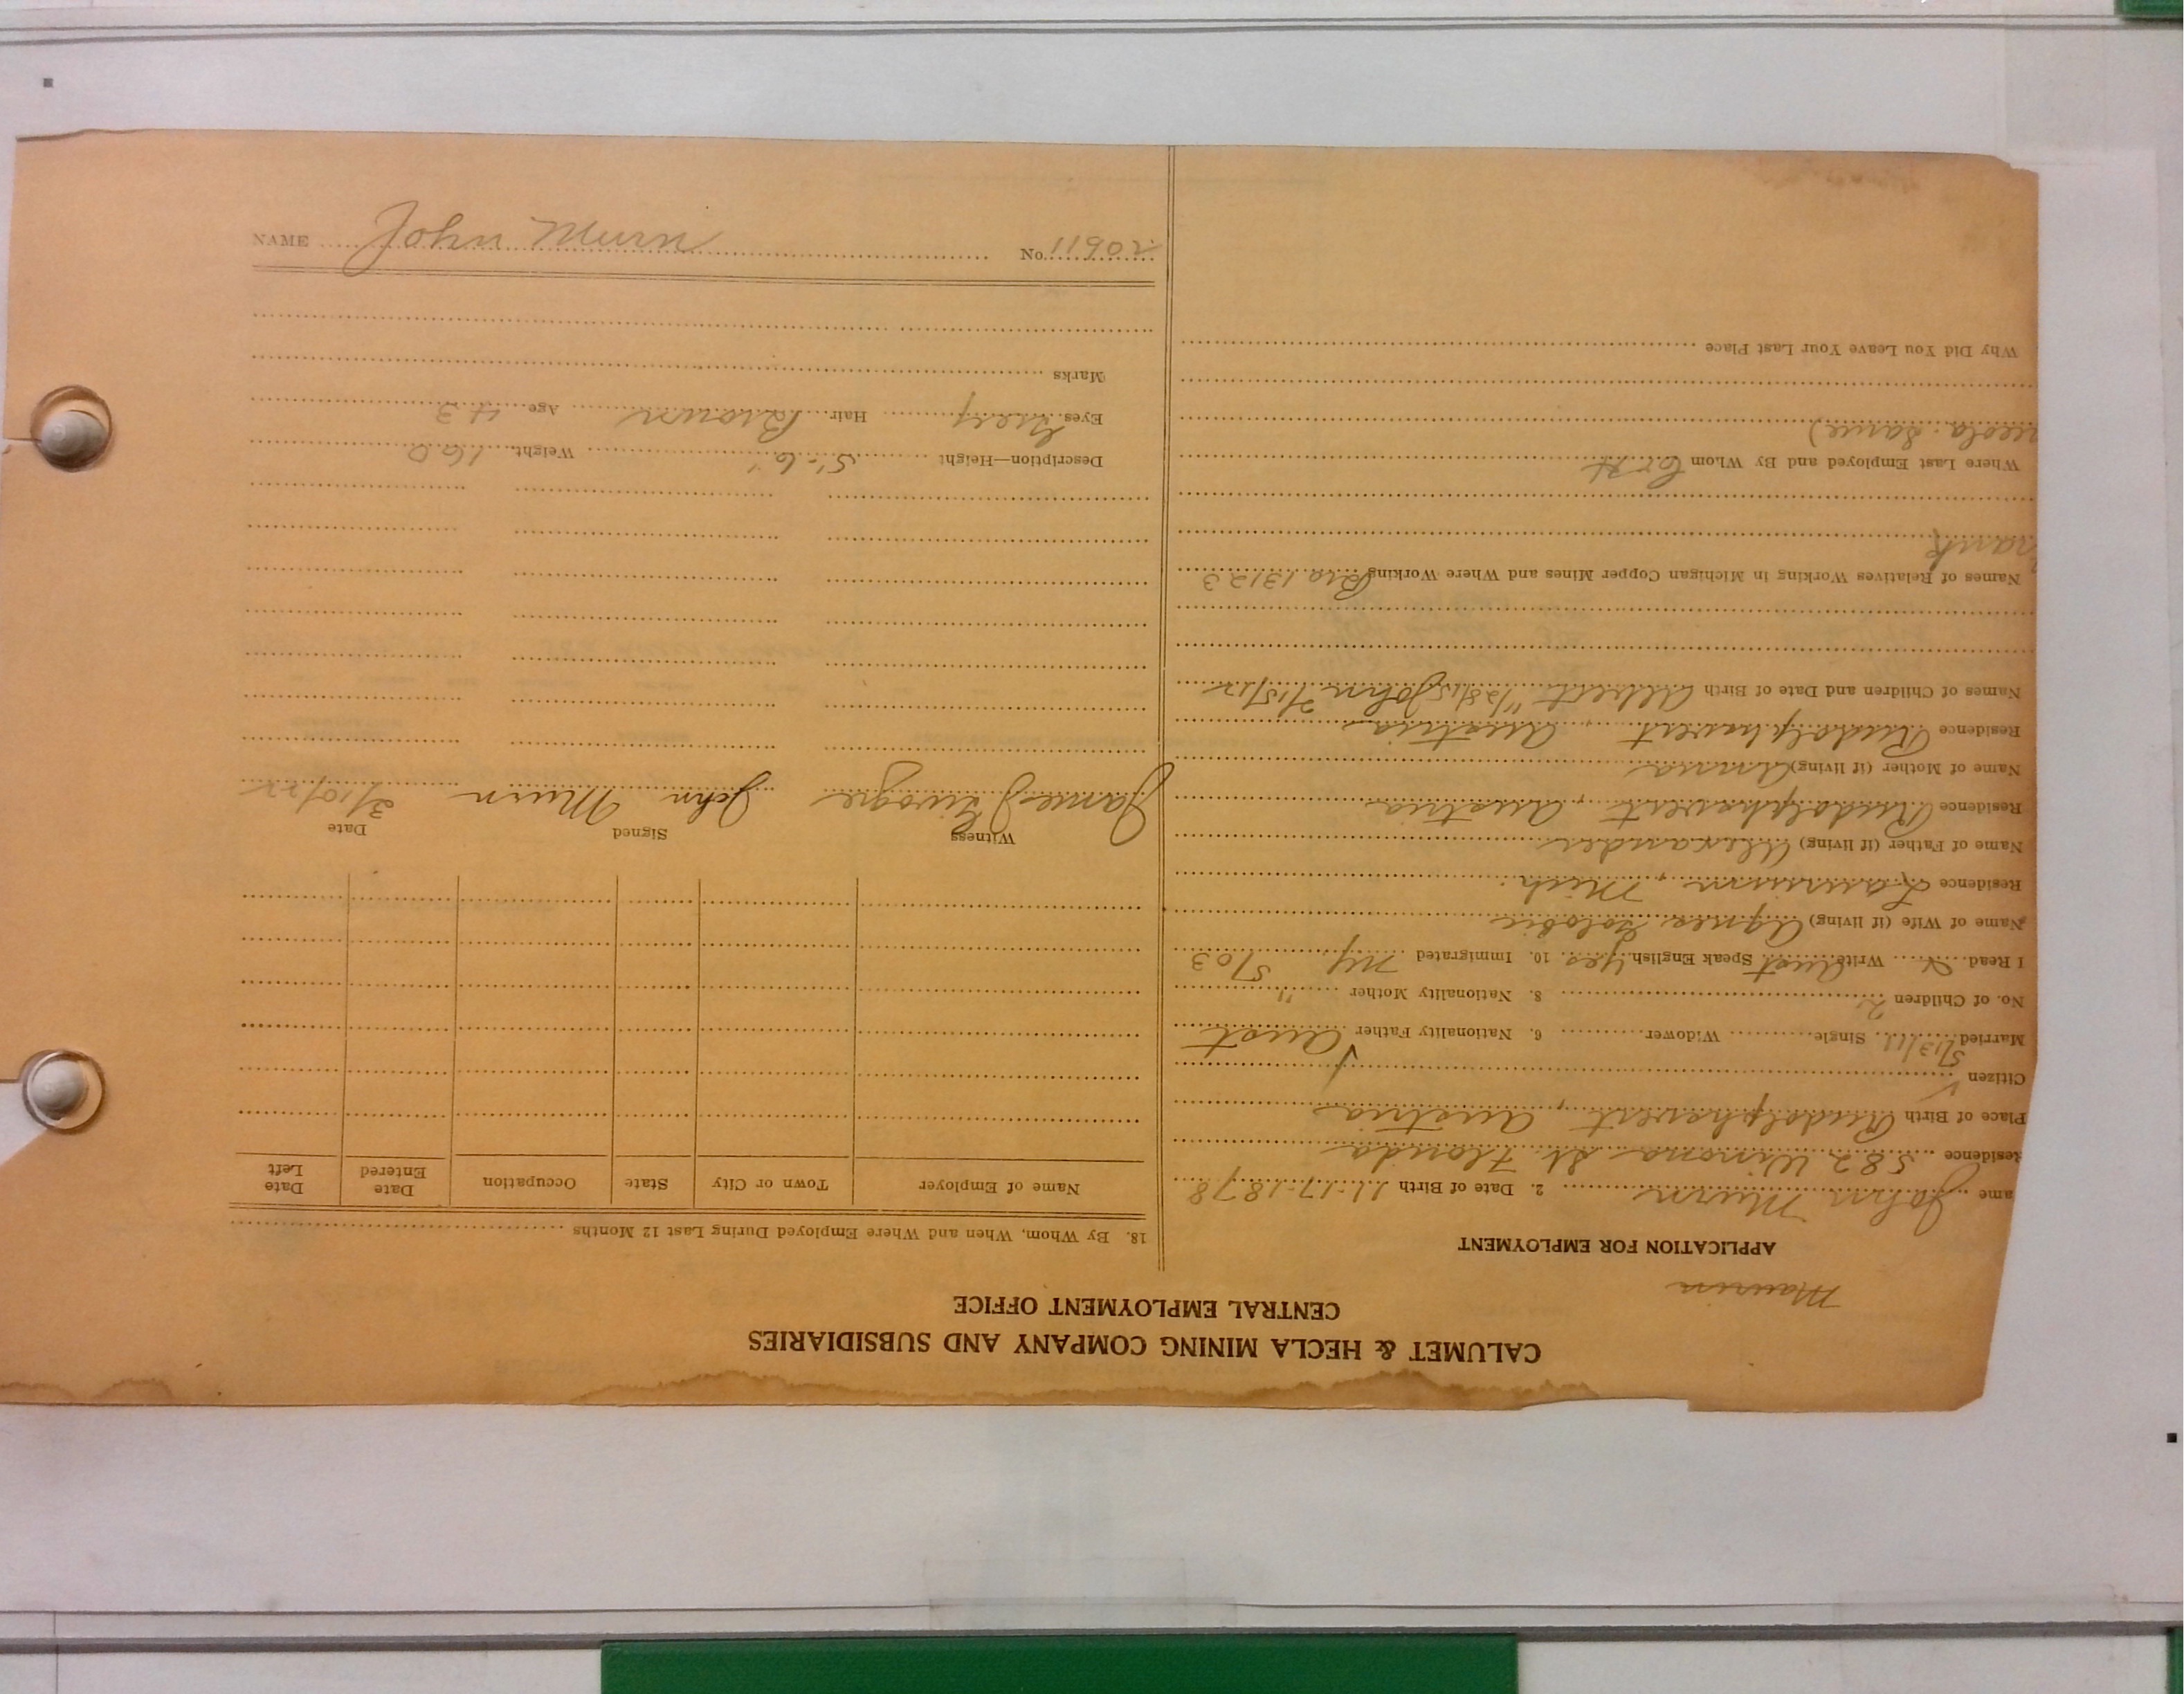 CALUMET & HECLA MINING COMPANY AND SUBSIDIARIES
CENTRAL EMPLOYMENT OFFICE
Maurin
APPLICATION FOR EMPLOYMENT
ame John Murn 2. Date of Birth 11-17-1878
Residence 582 Winona St. Florida
Place of Birth Rudolphswert, Austria
Citizen ✓
Married 5/13/11 Single Widower 6. Nationality Father Aust
No. of Children 2 8. Nationality Mother "
I Read Write Aust Speak English yes 10. Immigrated NY. 5/03
Name of Wife (if living) Agnes
Residence Laurium, Mich.
Name of Father (if living) Alexander
Residence Rudolphswert, Austria
Name of Mother (if living) Anna
Residence Rudolphswert, Austria
Names of Children and Date of Birth Albert 11/28/15 John 2/15/12
Names of Relatives Working in Michigan Copper Mines and Where Working Bro. 13123
rank
Where Last Employed and By Whom C & H
Same)
Why Did You Leave Your Last Place
18. By Whom, When and Where Employed During Last 12 Months
Name of Employer Town or City State Occupation Date Entered Date Left
Witness Signed Date
James John Murn 3/10/22
Description—Height 5'-6" Weight 160
Eyes Grey Hair Brown Age 43
Marks
NAME John Murn No. 11902